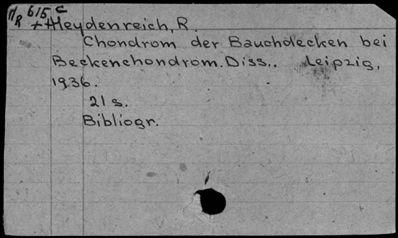 N/R 615 c
+ Heydenreich, R.
Chondrom der Bauchdecken bei
Beckenchondrom. Diss.. Leipzig,
1936.
21 s.
Bibliogr.